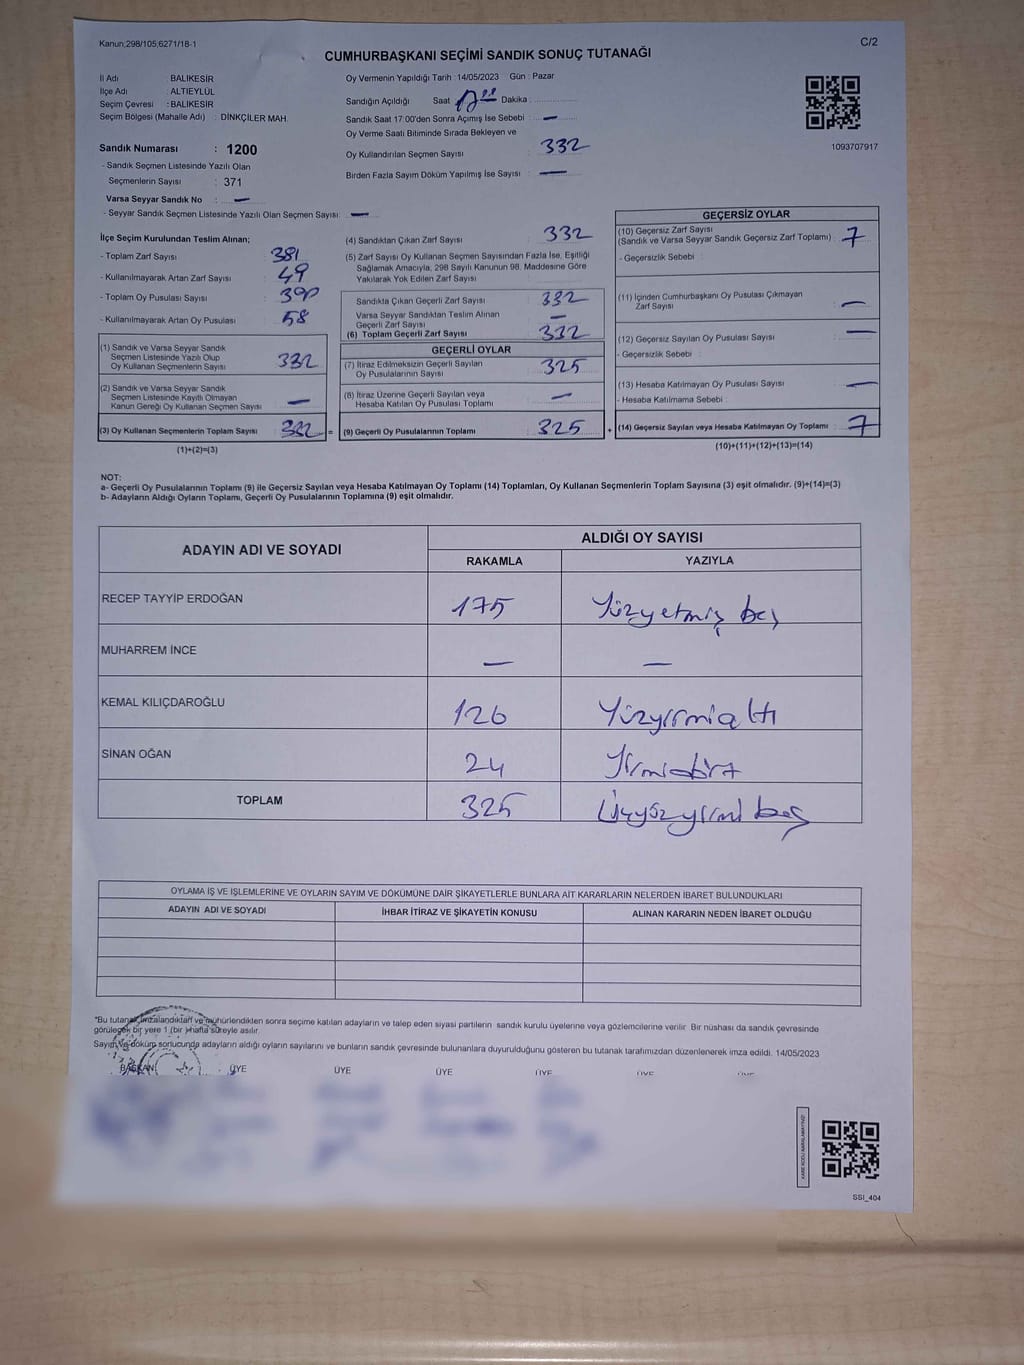 Kanun;298/105,6271/18-1
C/2
CUMHURBAŞKANI SEÇİMİ SANDIK SONUÇ TUTANAĞI
İl Adı BALIKESİR
İlçe Adı : ALTIEYLÜL
Seçim Çevresi : BALIKESİR
Seçim Bölgesi (Mahalle Adı) : DİNKÇİLER MAH.
Sandık Numarası : 1200
- Sandık Seçmen Listesinde Yazılı Olan
Seçmenlerin Sayısı : 371
Varsa Seyyar Sandık No : —
- Seyyar Sandık Seçmen Listesinde Yazılı Olan Seçmen Sayısı: —
Oy Vermenin Yapıldığı Tarih : 14/05/2023 Gün : Pazar
Sandığın Açıldığı Saat 17:00 Dakika :
Sandık Saat 17:00'den Sonra Açımış İse Sebebi : —
Oy Verme Saati Bitiminde Sırada Bekleyen ve
Oy Kullandırılan Seçmen Sayısı : 332
Birden Fazla Sayım Döküm Yapılmış İse Sayısı : —
1093707917
İlçe Seçim Kurulundan Teslim Alınan;
- Toplam Zarf Sayısı : 381
- Kullanılmayarak Artan Zarf Sayısı : 49
- Toplam Oy Pusulası Sayısı : 390
- Kullanılmayarak Artan Oy Pusulası : 58
(1) Sandık ve Varsa Seyyar Sandık
Seçmen Listesinde Yazılı Olup
Oy Kullanan Seçmenlerin Sayısı : 332
(2) Sandık ve Varsa Seyyar Sandık
Seçmen Listesinde Kayıtlı Olmayan
Kanun Gereği Oy Kullanan Seçmen Sayısı : —
(3) Oy Kullanan Seçmenlerin Toplam Sayısı : 332 =
(1)+(2)=(3)
(4) Sandıktan Çıkan Zarf Sayısı : 332
(5) Zarf Sayısı Oy Kullanan Seçmen Sayısından Fazla İse, Eşitliği
Sağlamak Amacıyla, 298 Sayılı Kanunun 98. Maddesine Göre
Yakılarak Yok Edilen Zarf Sayısı :
Sandıkta Çıkan Geçerli Zarf Sayısı : 332
Varsa Seyyar Sandıktan Teslim Alınan
Geçerli Zarf Sayısı : —
(6) Toplam Geçerli Zarf Sayısı : 332
GEÇERLİ OYLAR
(7) İtiraz Edilmeksizin Geçerli Sayılan
Oy Pusulalarının Sayısı : 325
(8) İtiraz Üzerine Geçerli Sayılan veya
Hesaba Katılan Oy Pusulası Toplamı : —
(9) Geçerli Oy Pusulalarının Toplamı : 325 +
GEÇERSİZ OYLAR
(10) Geçersiz Zarf Sayısı
(Sandık ve Varsa Seyyar Sandık Geçersiz Zarf Toplamı) : 7
- Geçersizlik Sebebi :
(11) İçinden Cumhurbaşkanı Oy Pusulası Çıkmayan
Zarf Sayısı : —
(12) Geçersiz Sayılan Oy Pusulası Sayısı : —
- Geçersizlik Sebebi :
(13) Hesaba Katılmayan Oy Pusulası Sayısı : —
- Hesaba Katılmama Sebebi :
(14) Geçersiz Sayılan veya Hesaba Katılmayan Oy Toplamı : 7
(10)+(11)+(12)+(13)=(14)
NOT:
a- Geçerli Oy Pusulalarının Toplamı (9) ile Geçersiz Sayılan veya Hesaba Katılmayan Oy Toplamı (14) Toplamları, Oy Kullanan Seçmenlerin Toplam Sayısına (3) eşit olmalıdır. (9)+(14)=(3)
b- Adayların Aldığı Oyların Toplamı, Geçerli Oy Pusulalarının Toplamına (9) eşit olmalıdır.
ADAYIN ADI VE SOYADI
ALDIĞI OY SAYISI
RAKAMLA YAZIYLA
RECEP TAYYİP ERDOĞAN 175 Yüzyetmiş beş
MUHARREM İNCE — —
KEMAL KILIÇDAROĞLU 126 Yüzyirmialtı
SİNAN OĞAN 24
TOPLAM 325 Üçyüzyirmi beş
OYLAMA İŞ VE İŞLEMLERİNE VE OYLARIN SAYIM VE DÖKÜMÜNE DAİR ŞİKAYETLERLE BUNLARA AİT KARARLARIN NELERDEN İBARET BULUNDUKLARI
ADAYIN ADI VE SOYADI İHBAR İTİRAZ VE ŞİKAYETİN KONUSU ALINAN KARARIN NEDEN İBARET OLDUĞU
*Bu tutanak imzalandıktan ve mühürlendikten sonra seçime katılan adayların ve talep eden siyasi partilerin sandık kurulu üyelerine veya gözlemcilerine verilir. Bir nüshası da sandık çevresinde
görülecek bir yere 1 (bir) hafta süreyle asılır.
Sayım ve döküm sonucunda adayların aldığı oyların sayılarını ve bunların sandık çevresinde bulunanlara duyurulduğunu gösteren bu tutanak tarafımızdan düzenlenerek imza edildi. 14/05/2023
BAŞKAN ÜYE ÜYE ÜYE ÜYE ÜYE ÜYE
KARE KODU KARALAMAYINIZ!
SSI_404